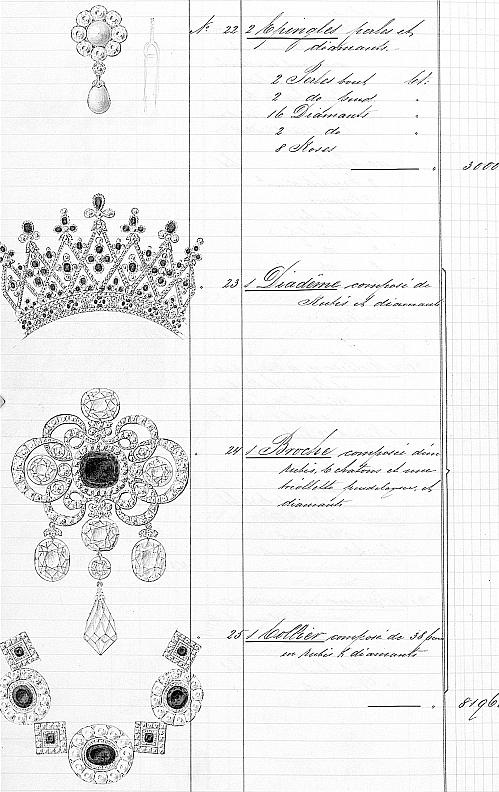 No 22 2 Epingles perles et
diamants
2 Perles bout
2 do
16 Diamants "
2 do "
8 Roses
" 3000
23 1 Diadême composé de
Rubis et diamants
24 1 Broche composée d'un
rubis, 6 chatons et une
briollette pendeloque, et
diamants
25 1 Collier composé de 38
en rubis & diamants
" 8196